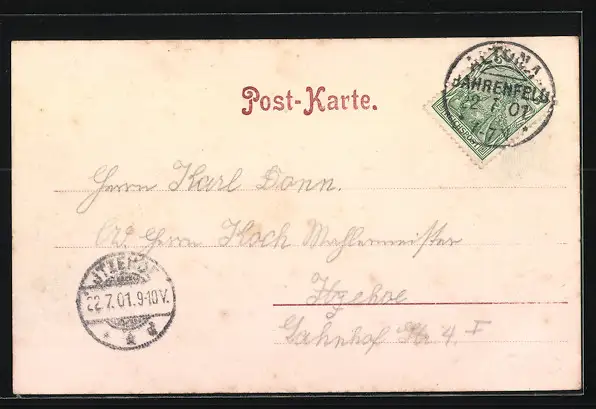 ALTONA
BAHRENFELD
22.7.01
Post-Karte.
Herrn Karl Dann.
Herrn Koch Mahlermeister
Itzehoe
Bahnhof Str 4. I
ITZEHOE
22.7.01.9-10V.
d